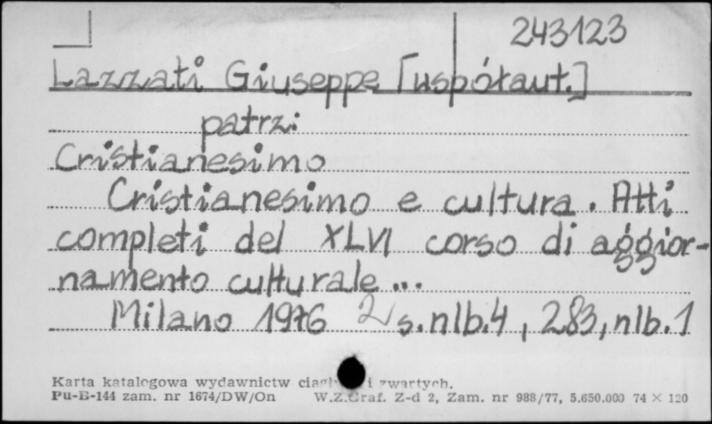 243123
Lazzati Giuseppe [współaut.]
patrz:
Cristianesimo
Cristianesimo e cultura. Atti
completi del XLVI corso di aggior-
namento culturale...
Milano 1976 s. nlb. 4, 283, nlb. 1
Karta katalogowa wydawnictw i zwartych.
Pu-B-144 zam. nr 1674/DW/On W.Z.Graf. Z-d 2, Zam. nr 988/77, 5.650.000 74 × 120